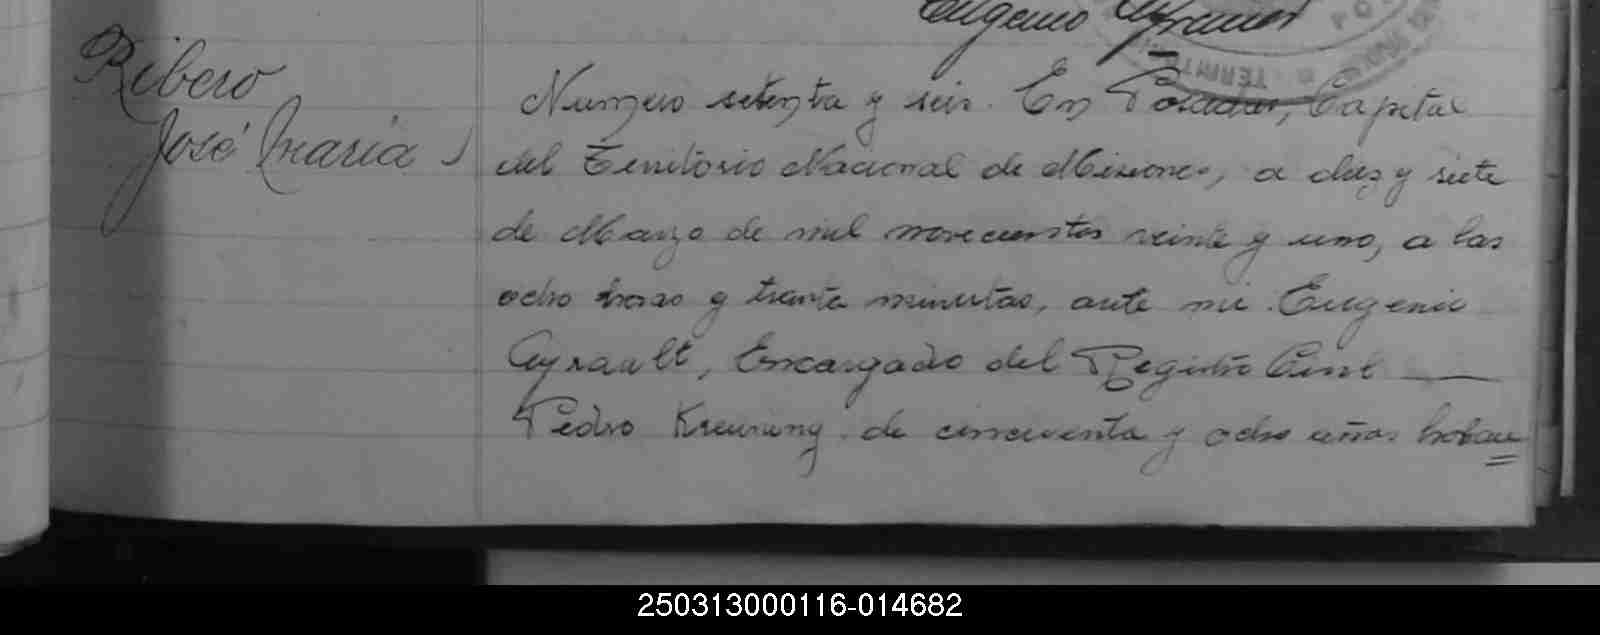 Eugenio
TERRITO
Ribero
José Maria
Numero setenta y seis. En Posadas, Capital
del Territorio Nacional de Misiones, a diez y siete
de Marzo de mil novecientos veinte y uno, a las
ocho horas y treinta minutos, ante mi Eugenio
Ayrault, Encargado del Registro Civil
Pedro de cincuenta y ocho años
250313000116-014682